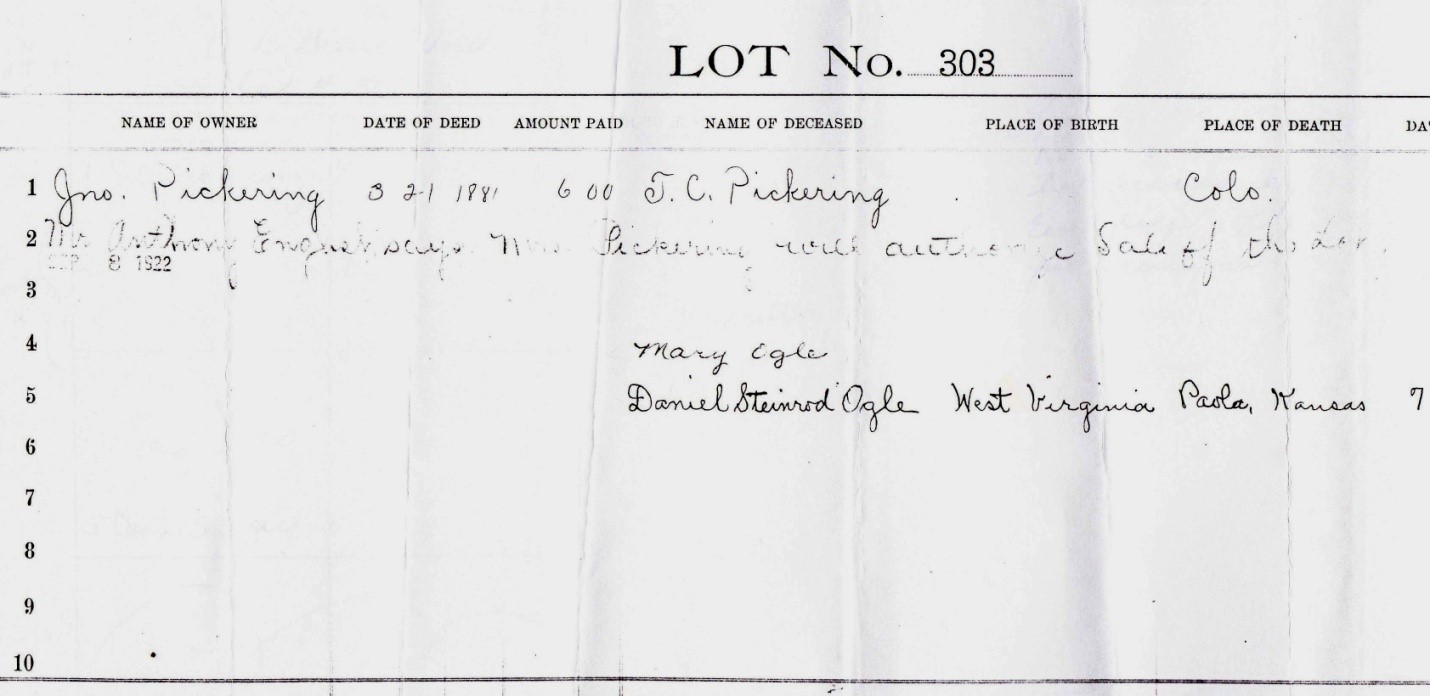 LOT No. 303
NAME OF OWNER DATE OF DEED AMOUNT PAID NAME OF DECEASED PLACE OF BIRTH PLACE OF DEATH DA
1 Jno. Pickering 3 21 1881 6 00 J. C. Pickering Colo.
2 Mr Anthony says Mrs. Pickering will authorize Sale of this Lot.
SEP 8 1922
3
4 Mary Ogle
5 Daniel Steinrod Ogle West Virginia Paola, Kansas 7
6
7
8
9
10